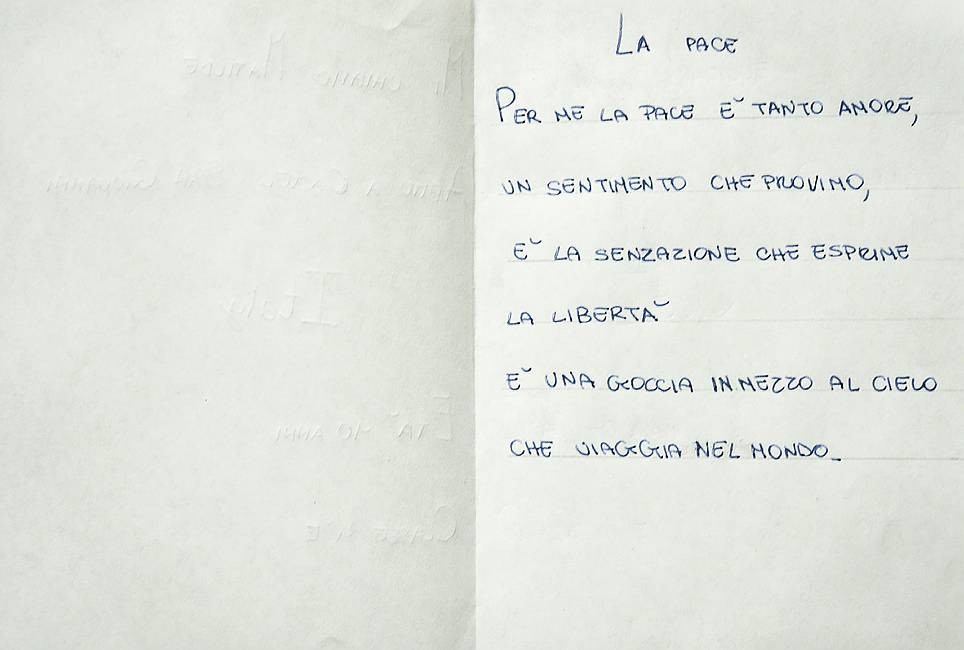 LA PACE
PER ME LA PACE È TANTO AMORE,
UN SENTIMENTO CHE PROVIMO,
È LA SENZAZIONE CHE ESPRIME
LA LIBERTÀ
È UNA GOCCIA IN MEZZO AL CIELO
CHE VIAGGIA NEL MONDO.